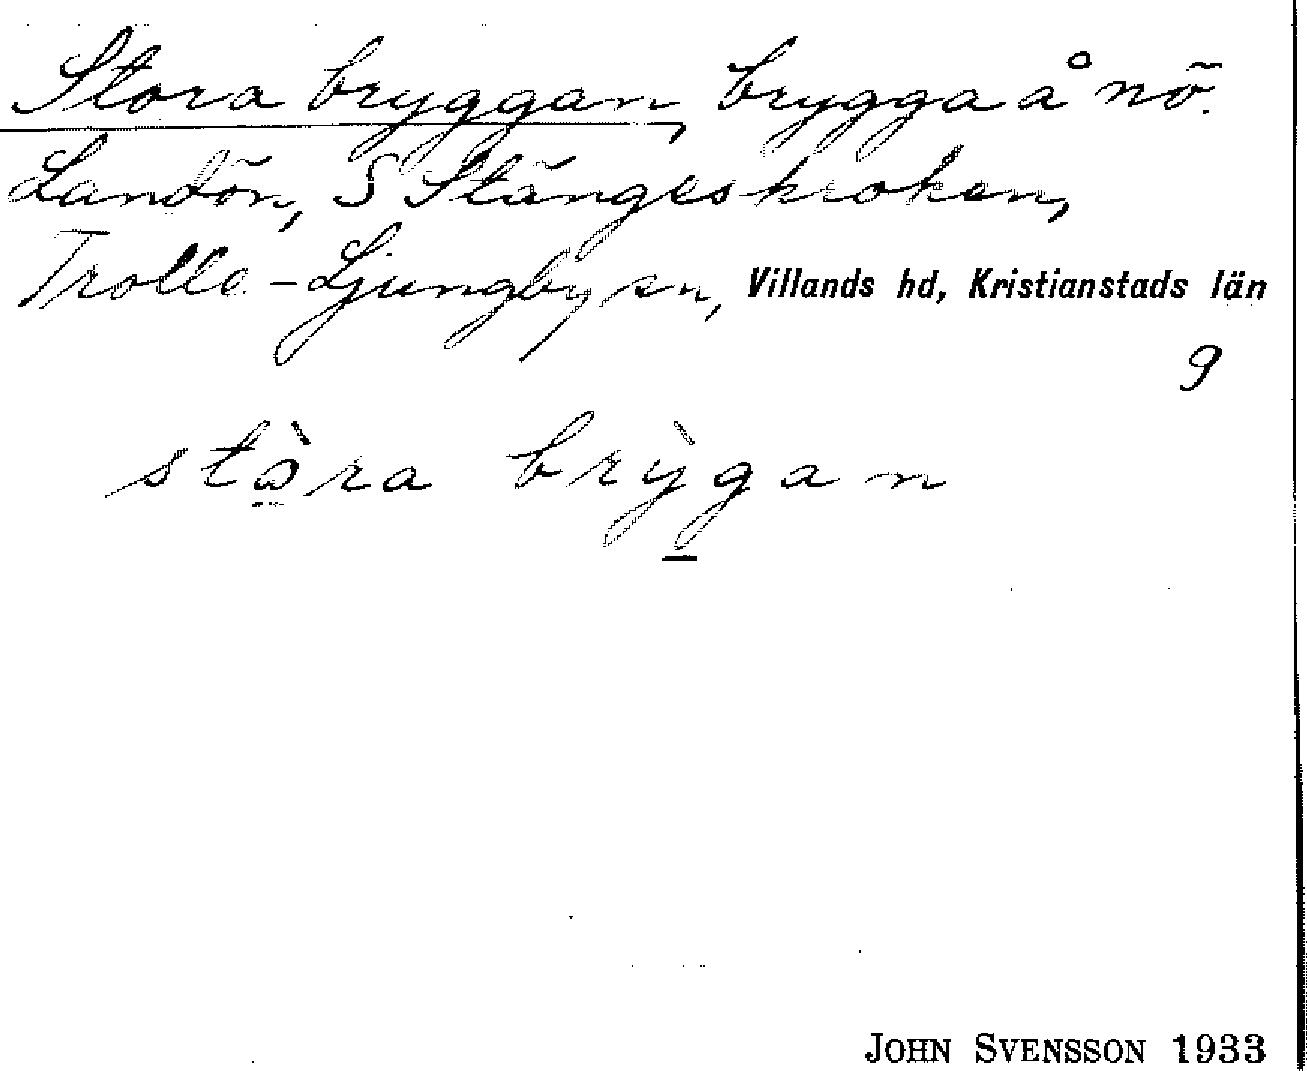 Stora bryggan, brygga å nö.
Landön, S Stängeskroken,
Trolle-Ljungby sn, Villands hd, Kristianstads län
9
stòra brỳgan
JOHN SVENSSON 1933